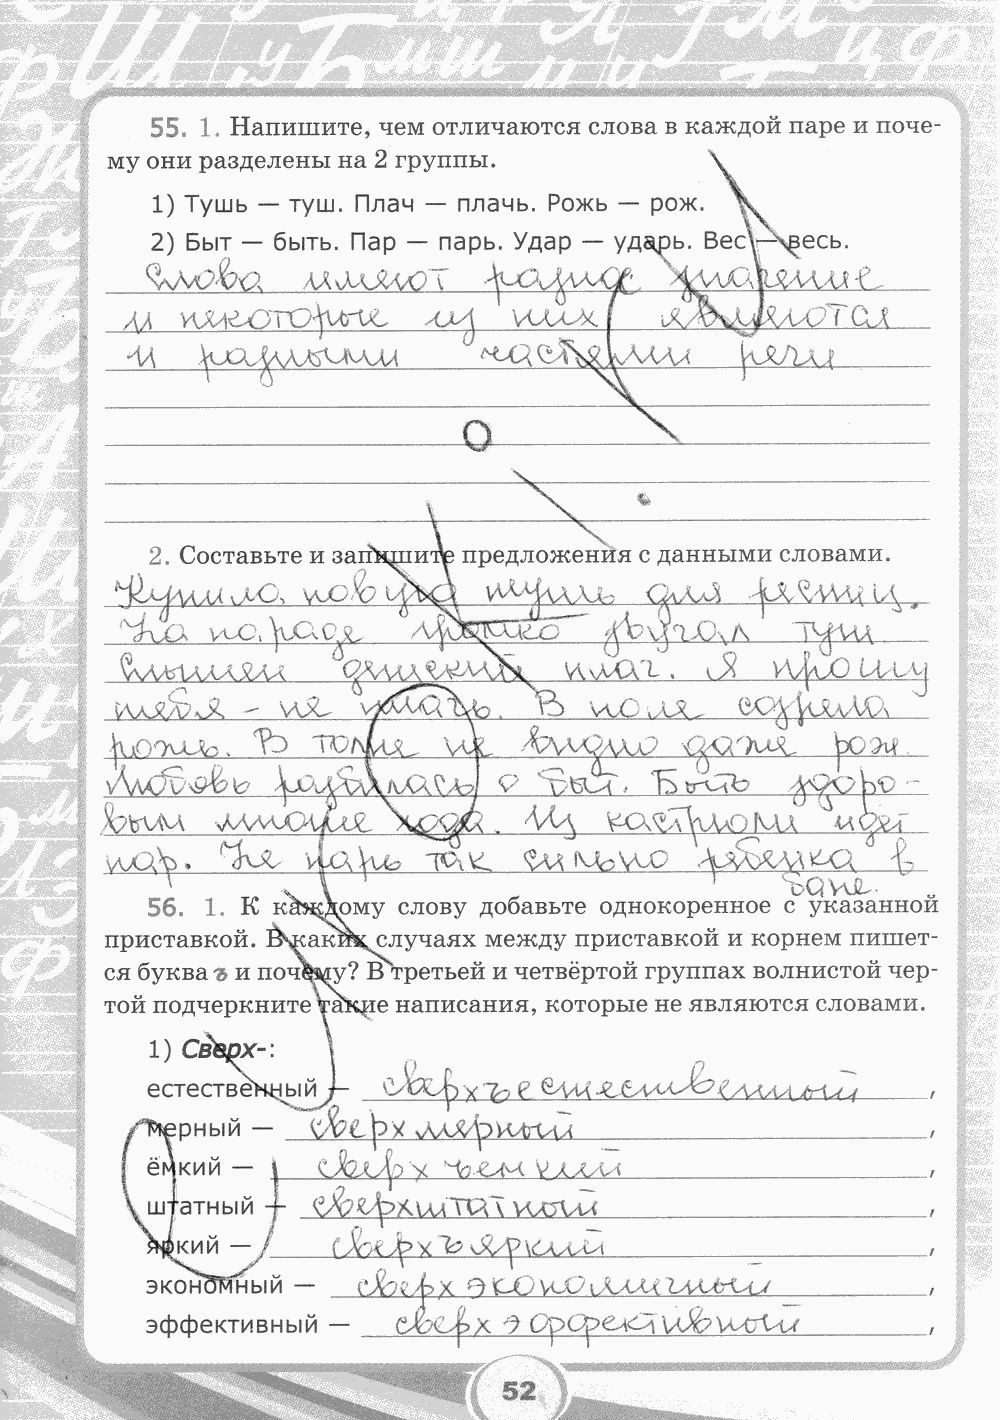 55. 1. Напишите, чем отличаются слова в каждой паре и поче-
му они разделены на 2 группы.
1) Тушь — туш. Плач — плачь. Рожь — рож.
2) Быт — быть. Пар — парь. Удар — ударь. Вес — весь.
Слова имеют разное значение
и некоторые из них являются
и разными частями речи
2. Составьте и запишите предложения с данными словами.
Купила новую тушь для ресниц.
На параде громко звучал туш.
Слышен детский плач. Я прошу
тебя - не плачь. В поле созрела
рожь. В толпе не видно даже рож.
Любовь разбилась о быт. Быть здоро-
вым многие хода. Из кастрюли идет
пар. Не парь так сильно ребенка в
бане.
56. 1. К каждому слову добавьте однокоренное с указанной
приставкой. В каких случаях между приставкой и корнем пишет-
ся буква ъ и почему? В третьей и четвёртой группах волнистой чер-
той подчеркните такие написания, которые не являются словами.
1) Сверх-:
естественный — сверхъестественный,
мерный — сверхмерный,
ёмкий — сверхъемкий,
штатный — сверхштатный,
яркий — сверхъяркий,
экономный — сверхэкономичный,
эффективный — сверхэффективный,
52